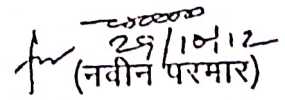 29/10/12
(नवीन परमार)